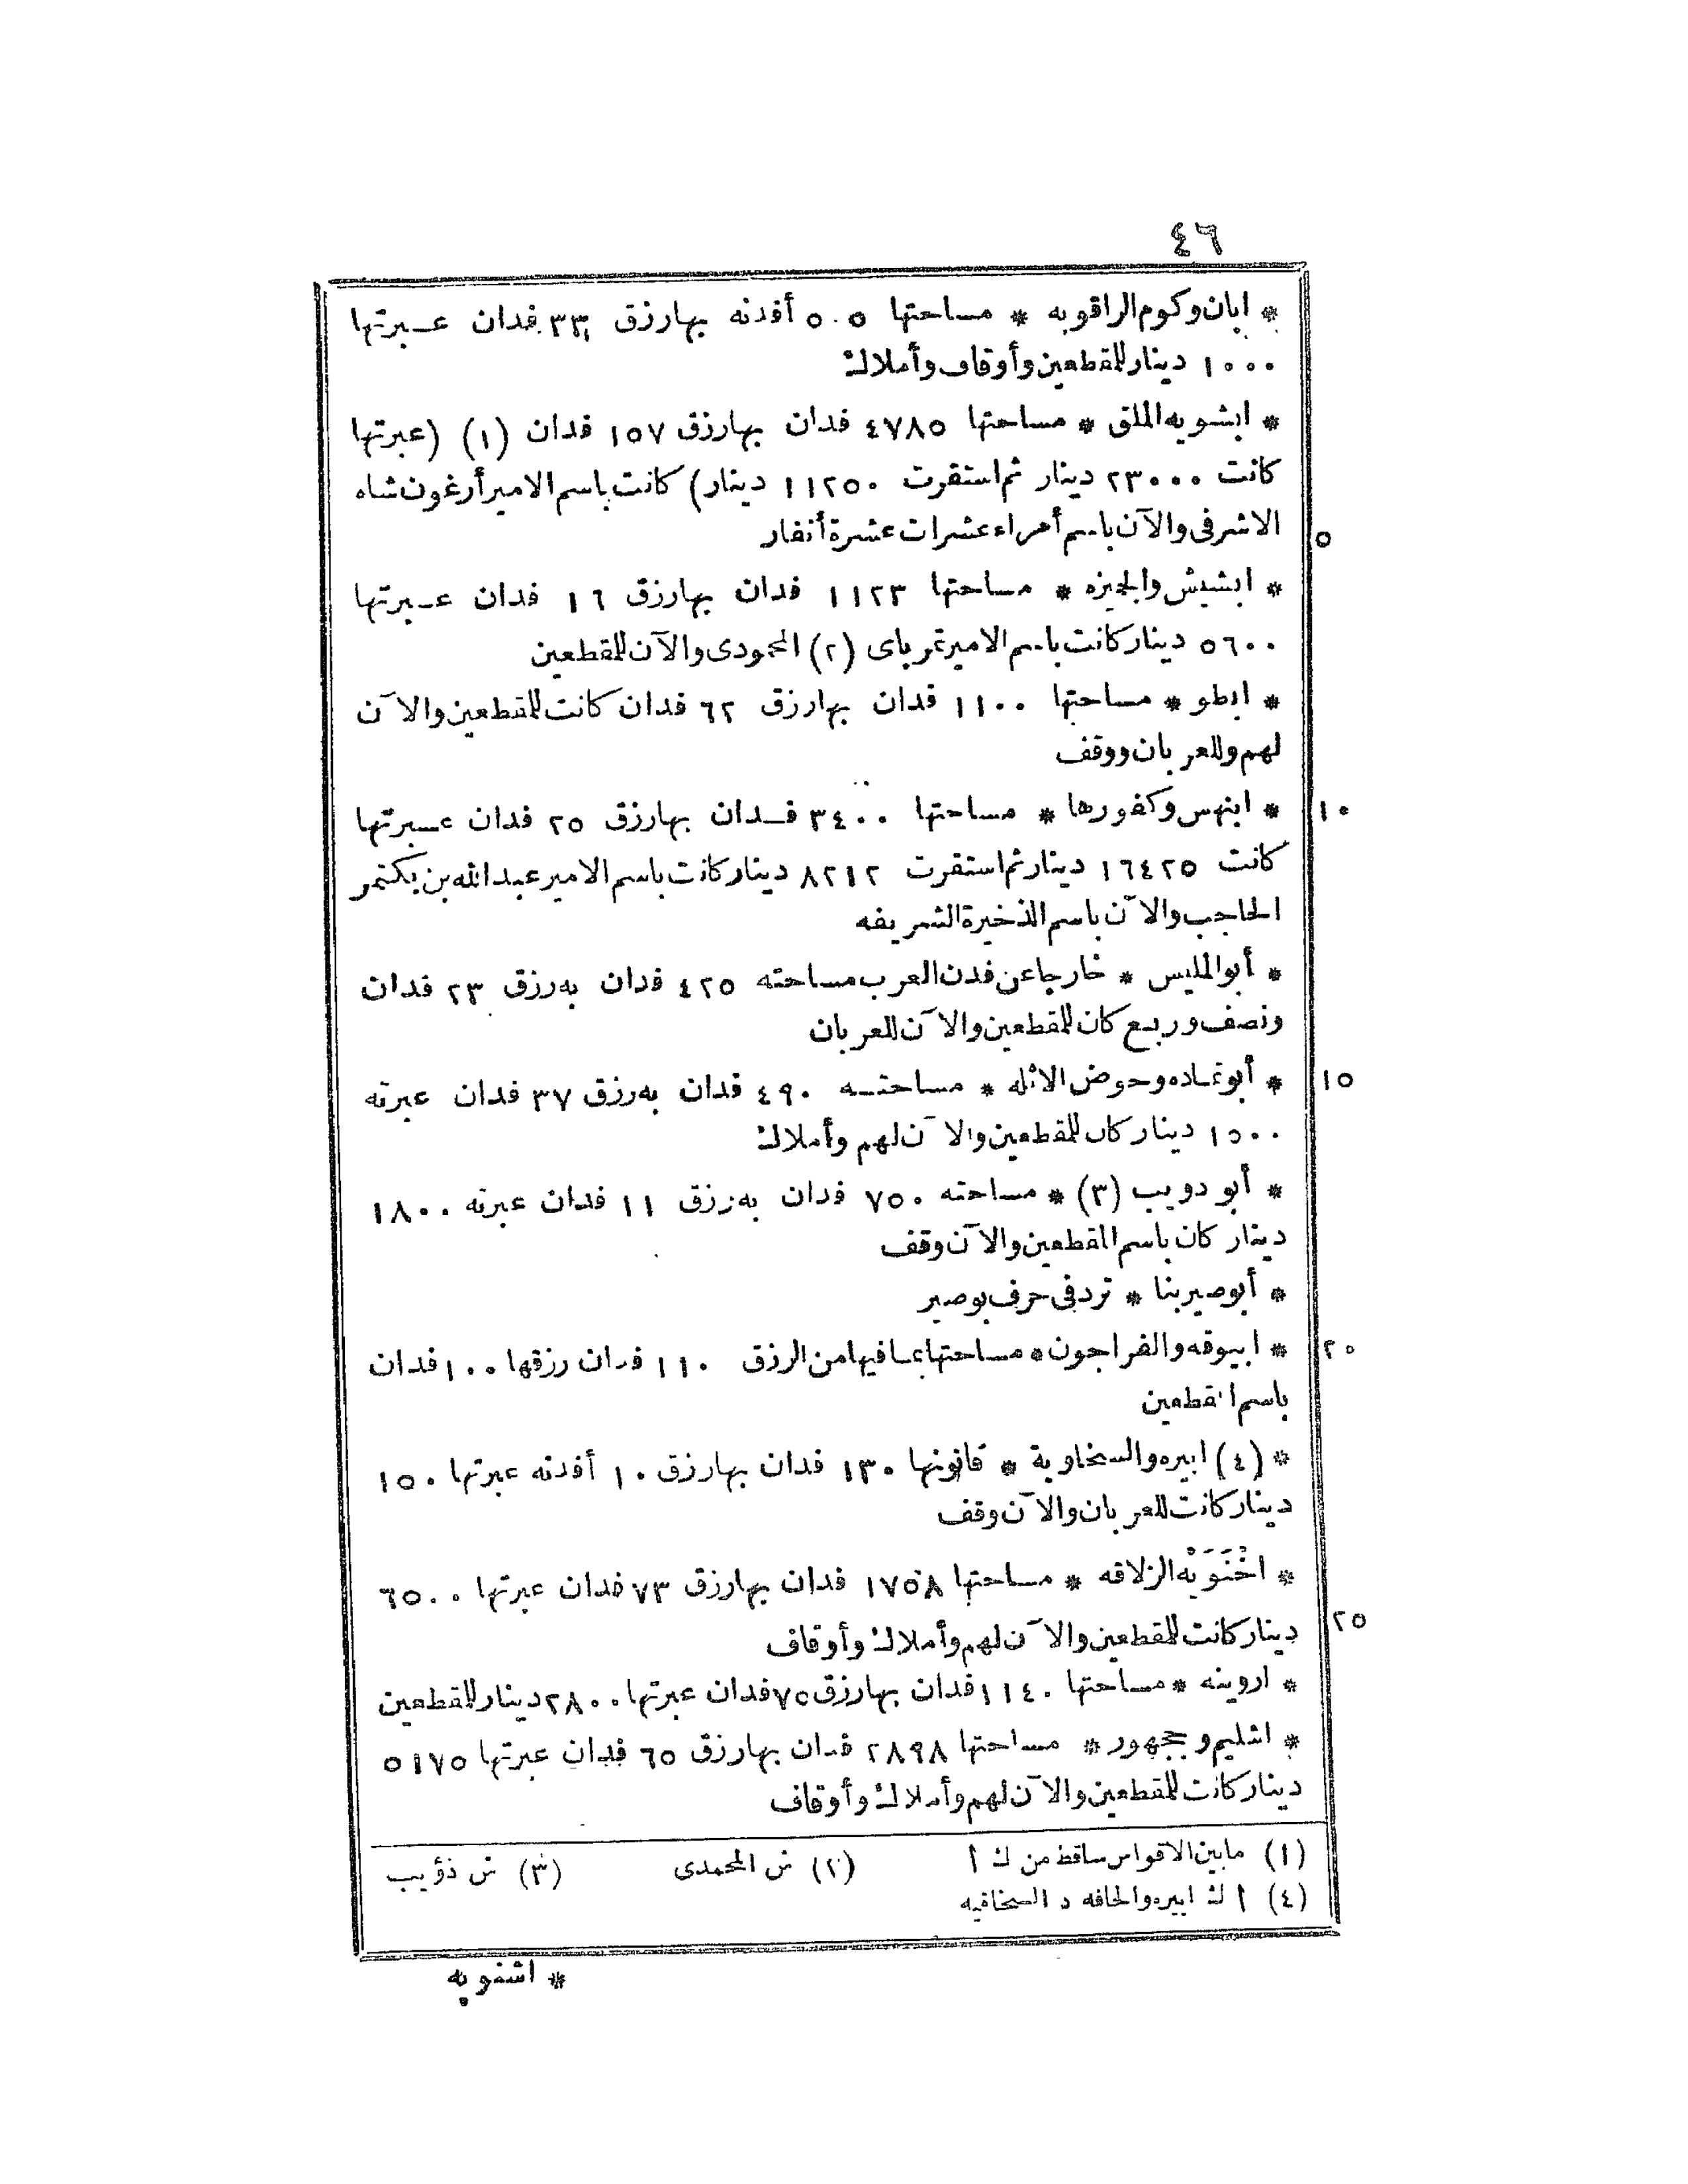 ٤٦
* ابان وكوم الراقوبه * مساحتها ٥٠٥ أفدنه بها رزق ٣٣ فدان عـــبرتها
١٠٠٠ دينار للمقطعين وأوقاف وأملاك
* ابشويه الملق * مساحتها ٤٧٨٥ فدان بها رزق ١٥٧ فدان (١) (عبرتها
كانت ٢٣٠٠٠ دينار ثم استقرت ١١٢٥٠ دينار) كانت باسم الامير أرغون شاه
٥ الاشرفى والآن باسم أمراء عشرات عشرة أنفار
* ابشيش والجيزه * مساحتها ١١٢٣ فدان بها رزق ١٦ فدان عـــبرتها
٥٦٠٠ دينار كانت باسم الامير تمر باى (٢) المحمودى والآن للمقطعين
* ابطو * مساحتها ١١٠٠ فدان بها رزق ٦٢ فدان كانت للمقطعين والآن
لهم وللعربان ووقف
١٠ * ابنهس وكفورها * مساحتها ٣٤٠٠ فــدان بها رزق ٢٥ فدان عـــبرتها
كانت ١٦٤٢٥ دينار ثم استقرت ٨٢١٢ دينار كانت باسم الامير عبد الله بن بكتمر
الحاجب والآن باسم الذخيرة الشريفه
* أبو المليس * خارجا عن فدن العرب مساحته ٤٢٥ فدان به رزق ٢٣ فدان
ونصف وربع كان للمقطعين والآن للعربان
١٥ * أبو تماده وحوض الاثله * مساحتــه ٤٩٠ فدان به رزق ٣٧ فدان عبرته
١٥٠٠ دينار كان للمقطعين والآن لهم وأملاك
* أبو دويب (٣) * مساحته ٧٥٠ فدان به رزق ١١ فدان عبرته ١٨٠٠
دينار كان باسم المقطعين والآن وقف
* أبو صير بنا * ترد فى حرف بوصير
٢٠ * ابيوقه والفراجون * مساحتها بما فيها من الرزق ١١٠ فدان رزقها ١٠٠ فدان
باسم المقطعين
* (٤) ابيره والسخاوية * قانونها ١٣٠ فدان بها رزق ١٠ أفدنه عبرتها ١٥٠
دينار كانت للعربان والآن وقف
* اخْنَوَيْه الزلاقه * مساحتها ١٧٥٨ فدان بها رزق ٧٣ فدان عبرتها ٦٥٠٠
٢٥ دينار كانت للمقطعين والآن لهم وأملاك وأوقاف
* اروينه * مساحتها ١١٤٠ فدان بها رزق ٧٥ فدان عبرتها ٢٨٠٠ دينار للمقطعين
* اشليم وججهور * مساحتها ٢٨٩٨ فدان بها رزق ٦٥ فدان عبرتها ٥١٧٥
دينار كانت للمقطعين والآن لهم وأملاك وأوقاف
(١) ما بين الاقواس ساقط من ك أ (٢) س المحمدى (٣) س ذؤيب
(٤) أ ك ابيره والحافه د السخافيه
* اشنويه